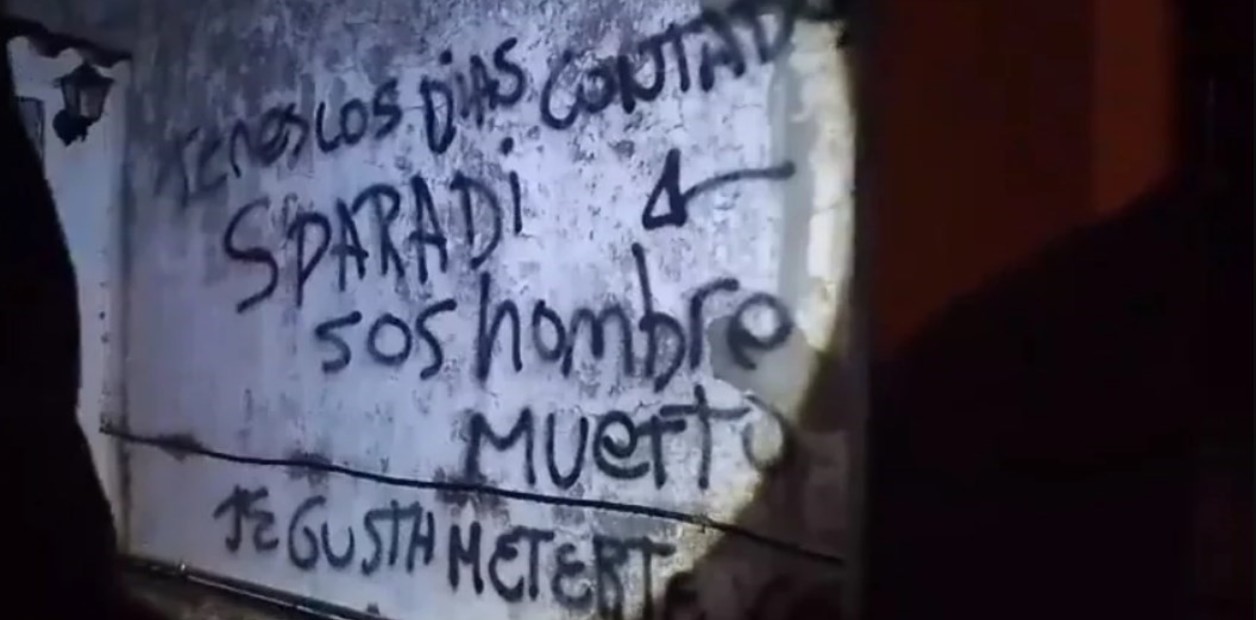 TENES LOS DÍAS CONTAD
SPARADI
SOS hombre
MUERTO
TE GUSTA METERTE